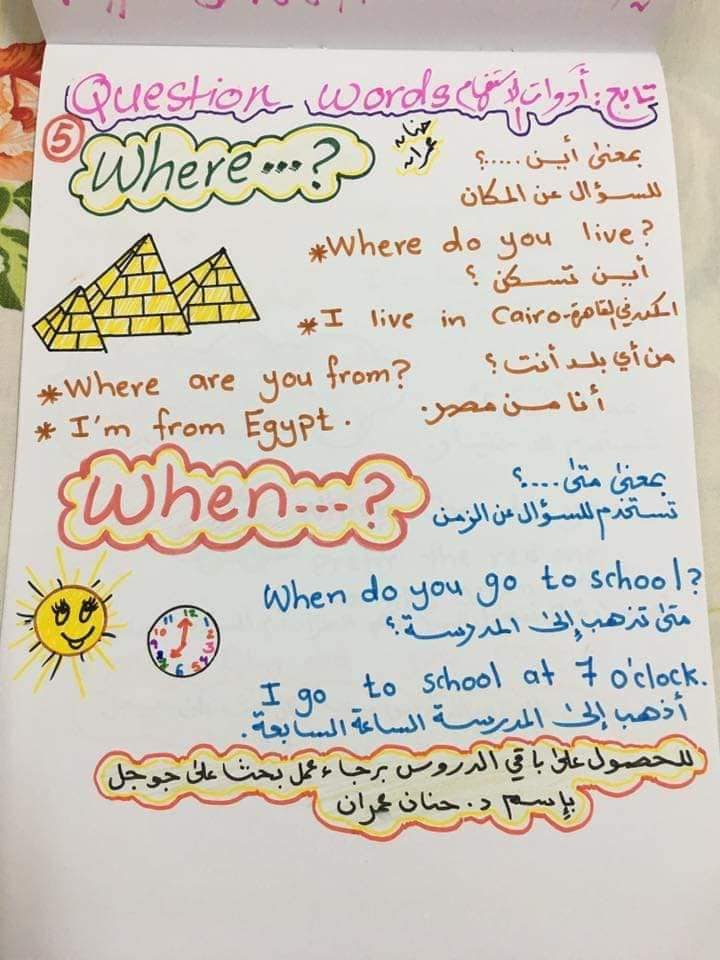 Question words تابع: أدوات الإستفهام
5
Where...?
حنان
عمران
بمعنى أين.....؟
للسؤال عن المكان
*Where do you live?
أين تسكن ؟
*I live in Cairo-أسكن في القاهرة
*Where are you from?
من أي بلد أنت؟
* I'm from Egypt.
أنا من مصر.
When...?
بمعنى متى....؟
تستخدم للسؤال عن الزمن
12 1 2 3 4 5 6 7 8 9 10 11
When do you go to school?
متى تذهب إلى المدرسة؟
I go to school at 7 o'clock.
أذهب إلى المدرسة الساعة السابعة.
للحصول على باقي الدروس برجاء عمل بحث على جوجل
بإسم د. حنان عمران